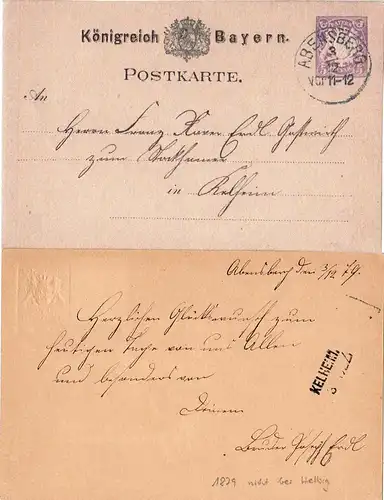 Königreich Bayern.
ABENSBERG
3
12
Vor 11-12
POSTKARTE.
An
Herrn Franz Xaver Erdl Gastwirth
zum
in Kelheim
Abensberg den 3/12 79.
Herzlichen Glückwunsch zum
heutigen Tage von uns Allen
und besonders von
Deinem
Bruder Joseph Erdl
KELHEIM
3
1879 nicht bei Helbig